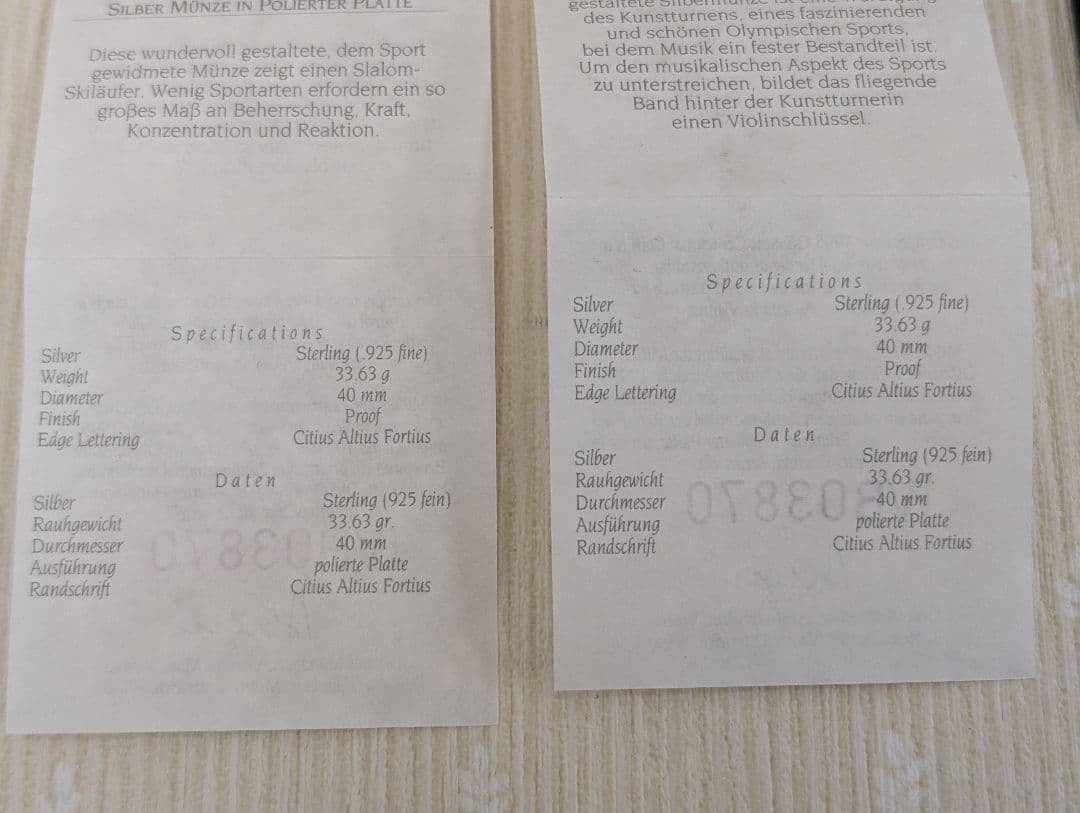 SILBER MÜNZE IN POLIERTER PLATTE
Diese wundervoll gestaltete, dem Sport
gewidmete Münze zeigt einen Slalom-
Skiläufer. Wenig Sportarten erfordern ein so
großes Maß an Beherrschung, Kraft,
Konzentration und Reaktion.
Specifications
Silver Sterling (.925 fine)
Weight 33.63 g
Diameter 40 mm
Finish Proof
Edge Lettering Citius Altius Fortius
Daten
Silber Sterling (925 fein)
Rauhgewicht 33.63 gr.
Durchmesser 40 mm
Ausführung polierte Platte
Randschrift Citius Altius Fortius
gestaltete Silbermünze ist eine
des Kunstturnens, eines faszinierenden
und schönen Olympischen Sports,
bei dem Musik ein fester Bestandteil ist.
Um den musikalischen Aspekt des Sports
zu unterstreichen, bildet das fliegende
Band hinter der Kunstturnerin
einen Violinschlüssel.
Specifications
Silver Sterling (.925 fine)
Weight 33.63 g
Diameter 40 mm
Finish Proof
Edge Lettering Citius Altius Fortius
Daten
Silber Sterling (925 fein)
Rauhgewicht 33.63 gr.
Durchmesser 40 mm
Ausführung polierte Platte
Randschrift Citius Altius Fortius